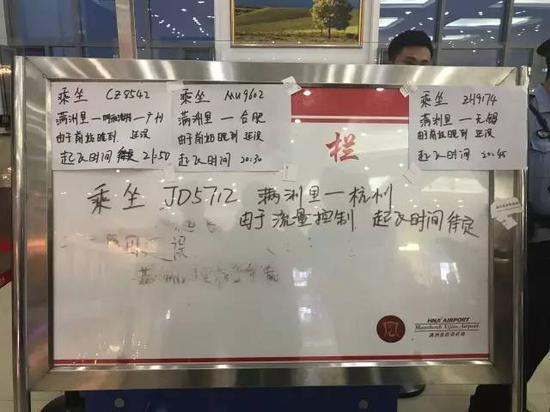 乘坐 CZ8542
满洲里—呼和浩特—广州
由于前站晚到 延误
起飞时间 21:50
乘坐 MU9602
满洲里—合肥
由于前站晚到 延误
起飞时间 20:30
乘坐 ZH9174
满洲里—无锡
由于前站晚到 延误
起飞时间 20:45
栏
乘坐 JD5712 满洲里—杭州
由于流量控制 起飞时间待定
HNA AIRPORT
Manzhouli Xijiao Airport
满洲里西郊机场